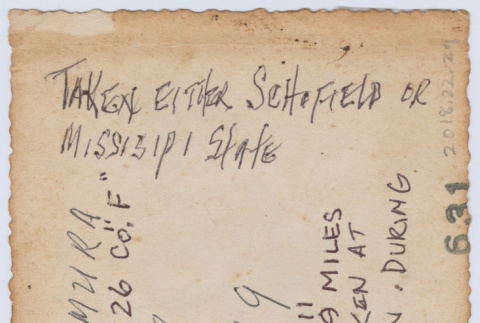 TAKEN EITHER SCHOFIELD OR
MISSISIPI State
MURA
26 CO. "F"
9
11
9 MILES
KEN AT
N. DURING
631
2018.22.29